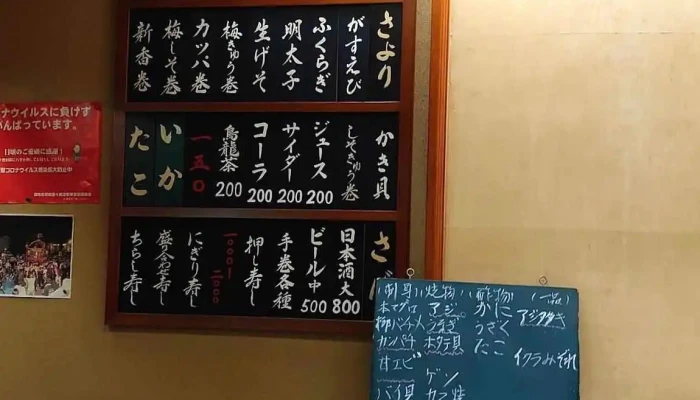 さより
がすえび
ふくらぎ
明太子
生げそ
梅きゅう巻
カッパ巻
梅しそ巻
新香巻
かき貝
しそきゅう巻
ジュース 200
サイダー 200
コーラ 200
烏龍茶 200
一五〇
いか
たこ
さば
日本酒大 800
ビール中 500
手巻各種
押し寿し
一〇〇〇 二〇〇〇
にぎり寿し
盛り合わせ寿し
ちらし寿し
ナウイルスに負けず
がんばっています。
日頃のご愛顧に感謝!
型コロナウイルス感染拡大防止中
(刺身)
本マグロ
柳バチメ
カンパチ
甘エビ
バイ貝
(焼物)
アジ
うなぎ
ホタテ貝
ゲソ
カマ焼
(酢物)
かに
うざく
たこ
(一品)
アジタタキ
イクラみぞれ